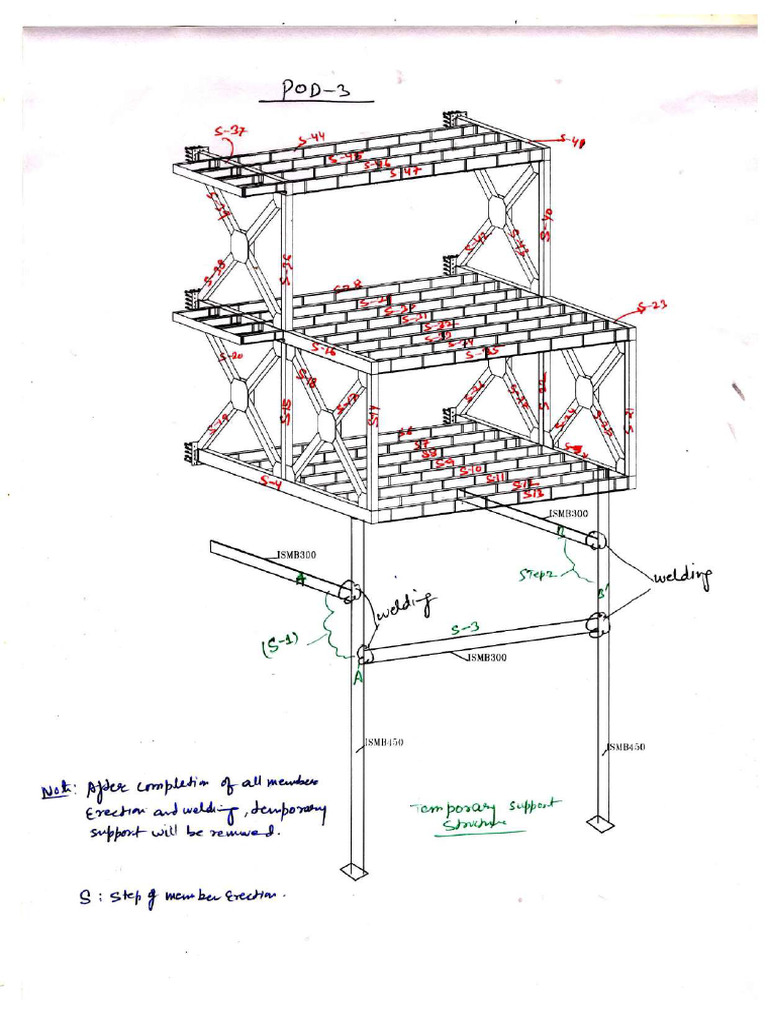 POD-3
S-37
S-44
S-45
S-46
S-47
S-39
S-38
S-36
S-42
S-43
S-40
S-28
S-31
S-32
S-35
S-23
S-16
S-20
S-18
S-17
S-19
S-15
S-14
S-22
S-24
S-4
S6
S7
S8
S-9
S-10
S-11
S-12
S13
ISMB300
ISMB300
A
(S-1)
welding
A
Step2
B'
welding
S-3
ISMB300
ISMB450
ISMB450
Note: After completion of all members
Erection and welding, temporary
support will be removed.
Temporary support
Structure
S: Step of member Erection.